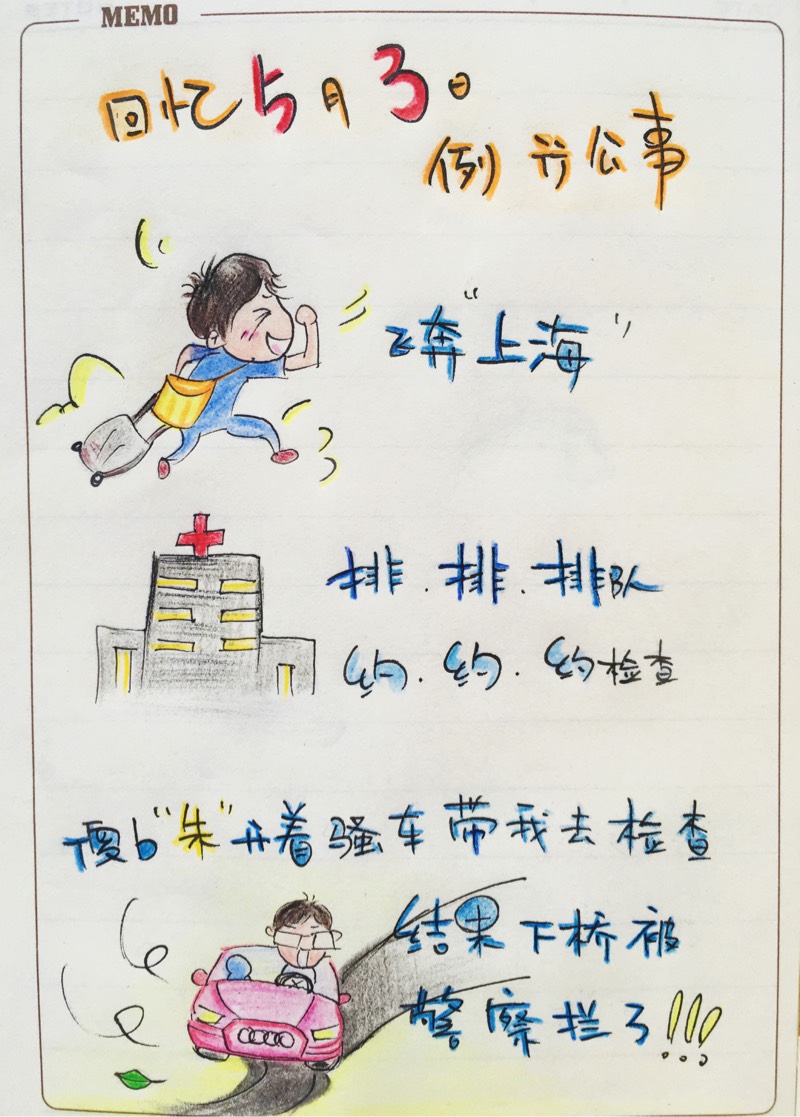 MEMO
回忆5月3日
例行公事
飞奔"上海"
排.排.排队
约.约.约检查
傻b"朱"开着骚车带我去检查
结果下桥被
警察拦了!!!